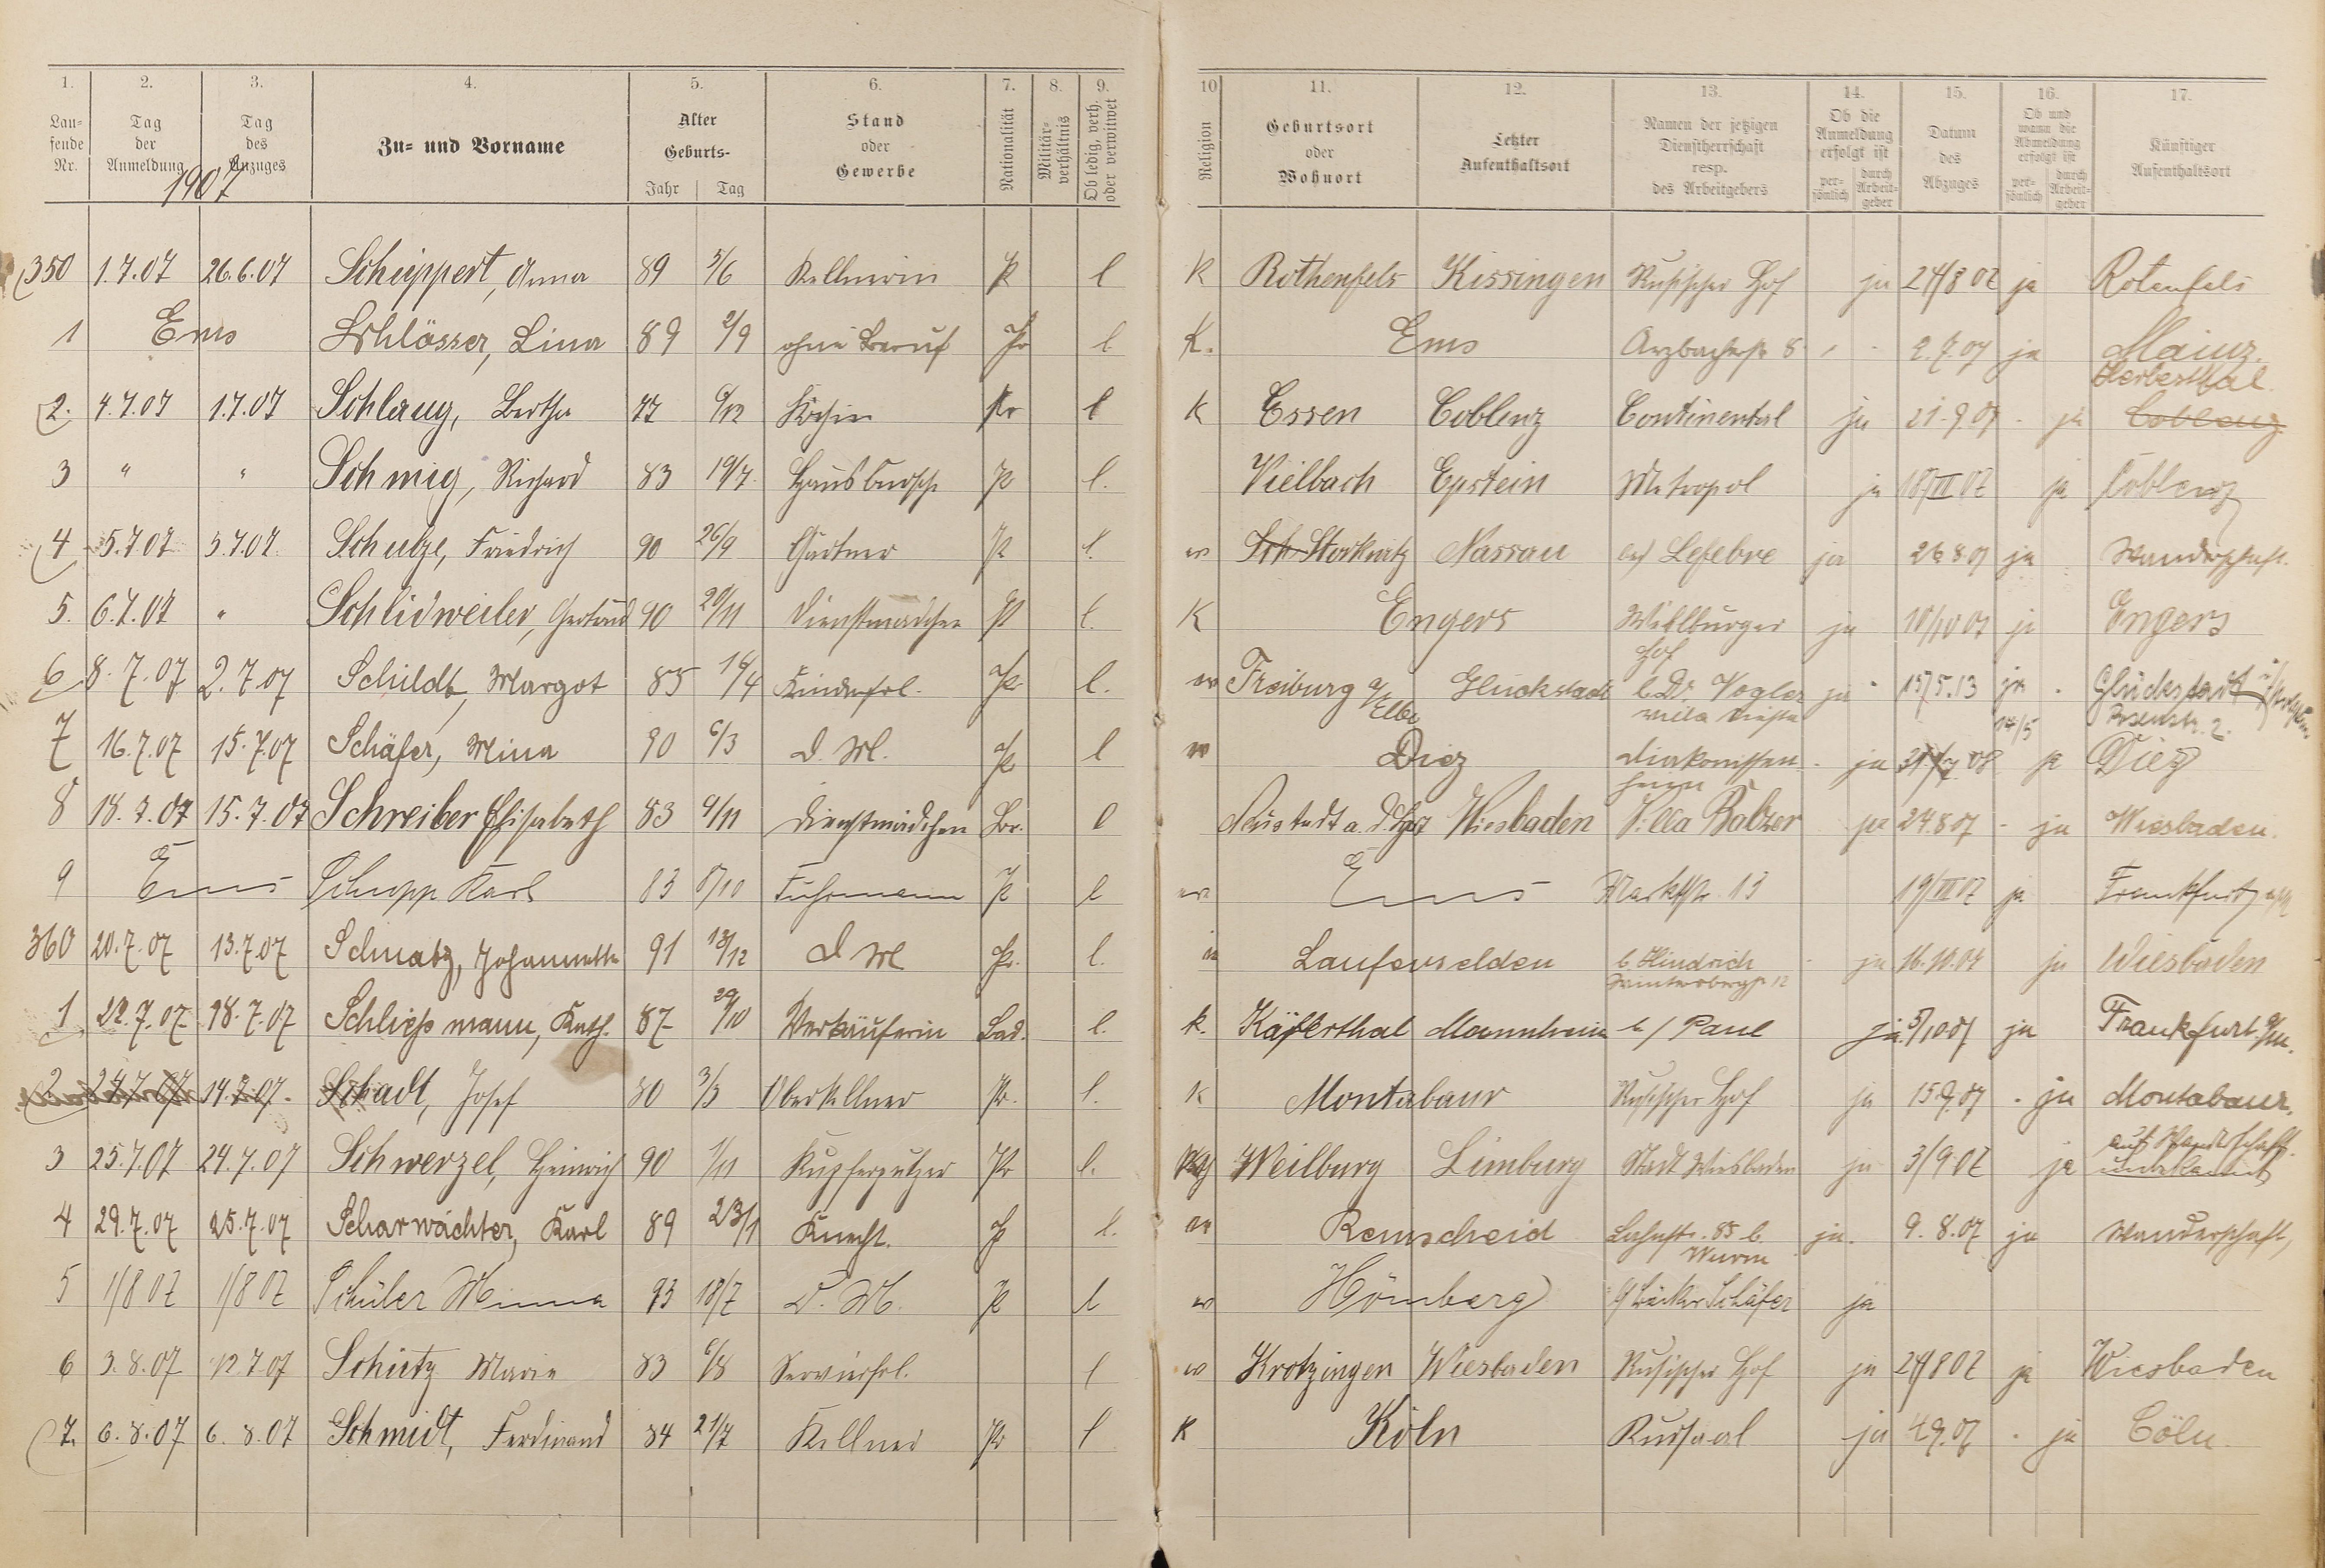 1. 2. 3. 4. 5. 6. 7. 8. 9. 10 11. 12. 13. 14. 15. 16. 17.
Laufende Nr. Tag der Anmeldung Tag des Anzuges Zu- und Vorname Alter Geburts- Jahr Tag Stand oder Gewerbe Nationalität Militär-verhältnis Ob ledig, verh. oder verwitwet Religion Geburtsort oder Wohnort Letzter Aufenthaltsort Namen der jetzigen Dienstherrschaft resp. des Arbeitgebers Ob die Anmeldung erfolgt ist per-sönlich durch Arbeit-geber Datum des Abzuges Ob und wann die Abmeldung erfolgt ist per-sönlich durch Arbeit-geber Künftiger Aufenthaltsort
1907
350 1.7.07 26.6.07 Schüppert, Anna 89 5/6 Kellnerin P l K Rothenfels Kissingen Russischer Hof ja 24/8 07 ja Rotenfels
1 Ems Schlösser, Lina 89 2/9 ohne Beruf Pr l K. Ems Arzbacherstr 8 2.7.07 ja Mainz.
Herbesthal
2. 4.7.07 1.7.07 Schlaug, Bertha 77 6/12 Köchin Pr l K Essen Coblenz Continental ja 21.9.07 - ja Coblenz
3 " " Schmig, Richard 83 19/7 Hausbursche Pr l. Vielbach Epstein Metropol ja ja Coblenz
4 5.7.07 5.7.07. Schulze, Friedrich 90 26/9 Gärtner P l. w Storkwitz Nassau bei Lefebre ja 26.8.07 ja Wanderschaft.
5. 6.7.07 " Schlidweiler, Gertrud 90 20/11 Dienstmädchen P l. K Engers Wiblburger Hof ja 10/10 07 ja Engers
6 8.7.07 2.7.07 Schildt, Margot 85 Kinderfrl. Pr l. w Freiburg a/Elbe Glückstadt b. Dr Vogler Villa ja 15/5.13 ja Glückstadt
14/5
7 16.7.07 15.7.07 Schäfer, Mina 90 6/3 d. M. Pr l w Diez Diakonissenheim - ja ja Diez
8 18.7.07 15.7.07 Schreiber Elisabeth 83 9/11 Dienstmädchen l Neustadt a. d. Wiesbaden Villa Balzer ja 24.8 07 - ja Wiesbaden.
9 Ems Schupp Karl 83 8/10 Fuhrmann P l w Ems Marktstr. 13 19/VII 07 ja Frankfurt a/M
360 20.7.07 13.7.07 Schmatz, Johannette 91 13/12 d M Pr. l. Laufenselden b. Hindrich Wintersbergstr 12 ja 16.10.07 ja Wiesbaden
1 22.7.07 18.7.07 Schließmann, Kath. 87 29/10 Verkäuferin Bad. l. k. Käferthal Mannheim b/ Paul ja 5/10 07 ja Frankfurt a/M.
2 24.7.07 14.7.07. Schadt, Josef 80 3/3 Oberkellner Pr. l. K Montabaur Russischer Hof ja 15.9.07 - ja Montabaur.
3 25.7.07 24.7.07 Schwerzel, Heinrich 90 1/11 Kupferputzer Pr l. Weilburg Limburg Stadt Wiesbaden ja 3/9.07 ja auf Wanderschaft. unbekannt
4 29.7.07 25.7.07 Scharwächter, Karl 89 23/1 Knecht. P l. w Remscheid Lahnstr. 85 b. Wurm ja. 9.8.07 ja Wanderschaft,
5 1/8 07 1/8 07 Schüler Minna 93 18/7 D. M. P l w Hömberg b/ Bäcker Schäfer ja
6 3.8.07 12.7.07 Schütz Marie 83 6/8 Servierfrl. l w Krotzingen Wiesbaden Russischer Hof ja 24/8 07 ja Wiesbaden
7. 6.8.07 6.8.07 Schmidt, Ferdinand 84 21/7 Kellner Pr l K Köln Kursaal ja 4.9.07 - ja Cöln.